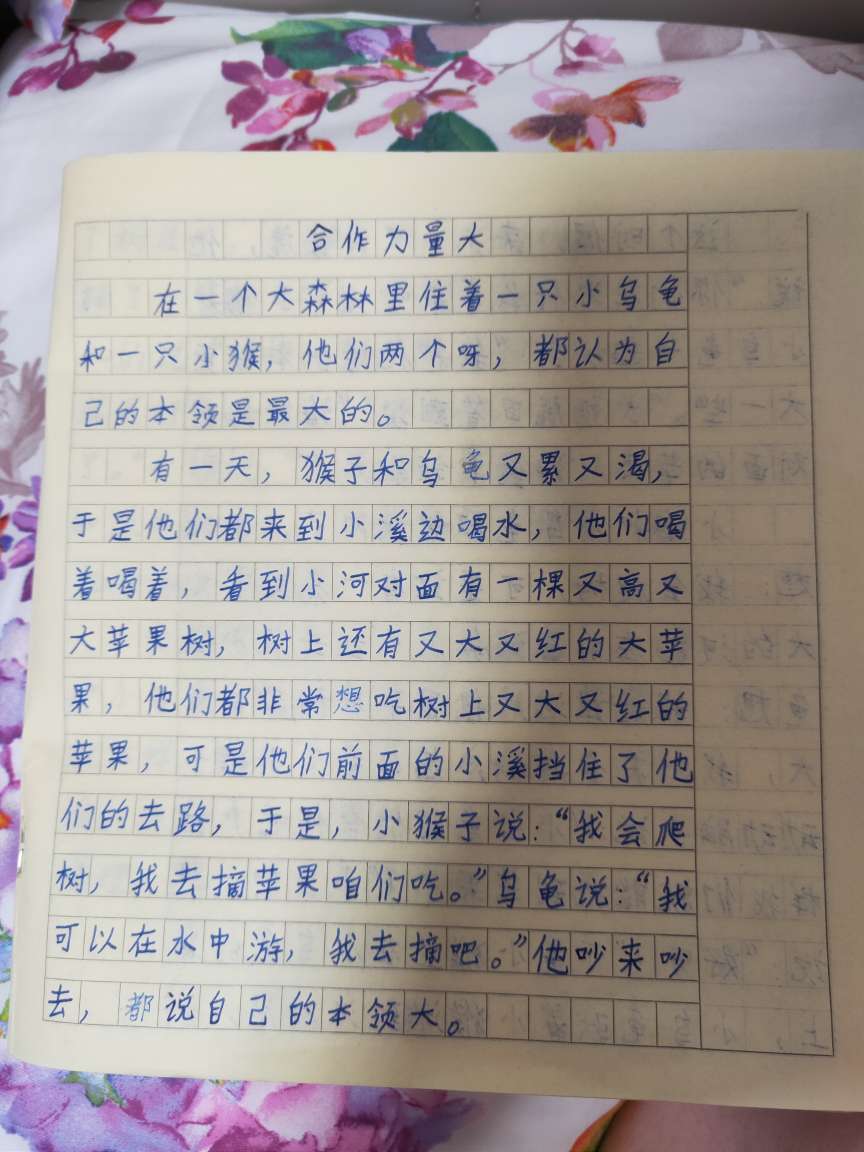 合作力量大
在一个大森林里住着一只小乌龟
和一只小猴，他们两个呀，都认为自
己的本领是最大的。
有一天，猴子和乌龟又累又渴，
于是他们都来到小溪边喝水，他们喝
着喝着，看到小河对面有一棵又高又
大苹果树，树上还有又大又红的大苹
果，他们都非常想吃树上又大又红的
苹果，可是他们前面的小溪挡住了他
们的去路，于是，小猴子说：“我会爬
树，我去摘苹果咱们吃。”乌龟说：“我
可以在水中游，我去摘吧。”他吵来吵
去，都说自己的本领大。